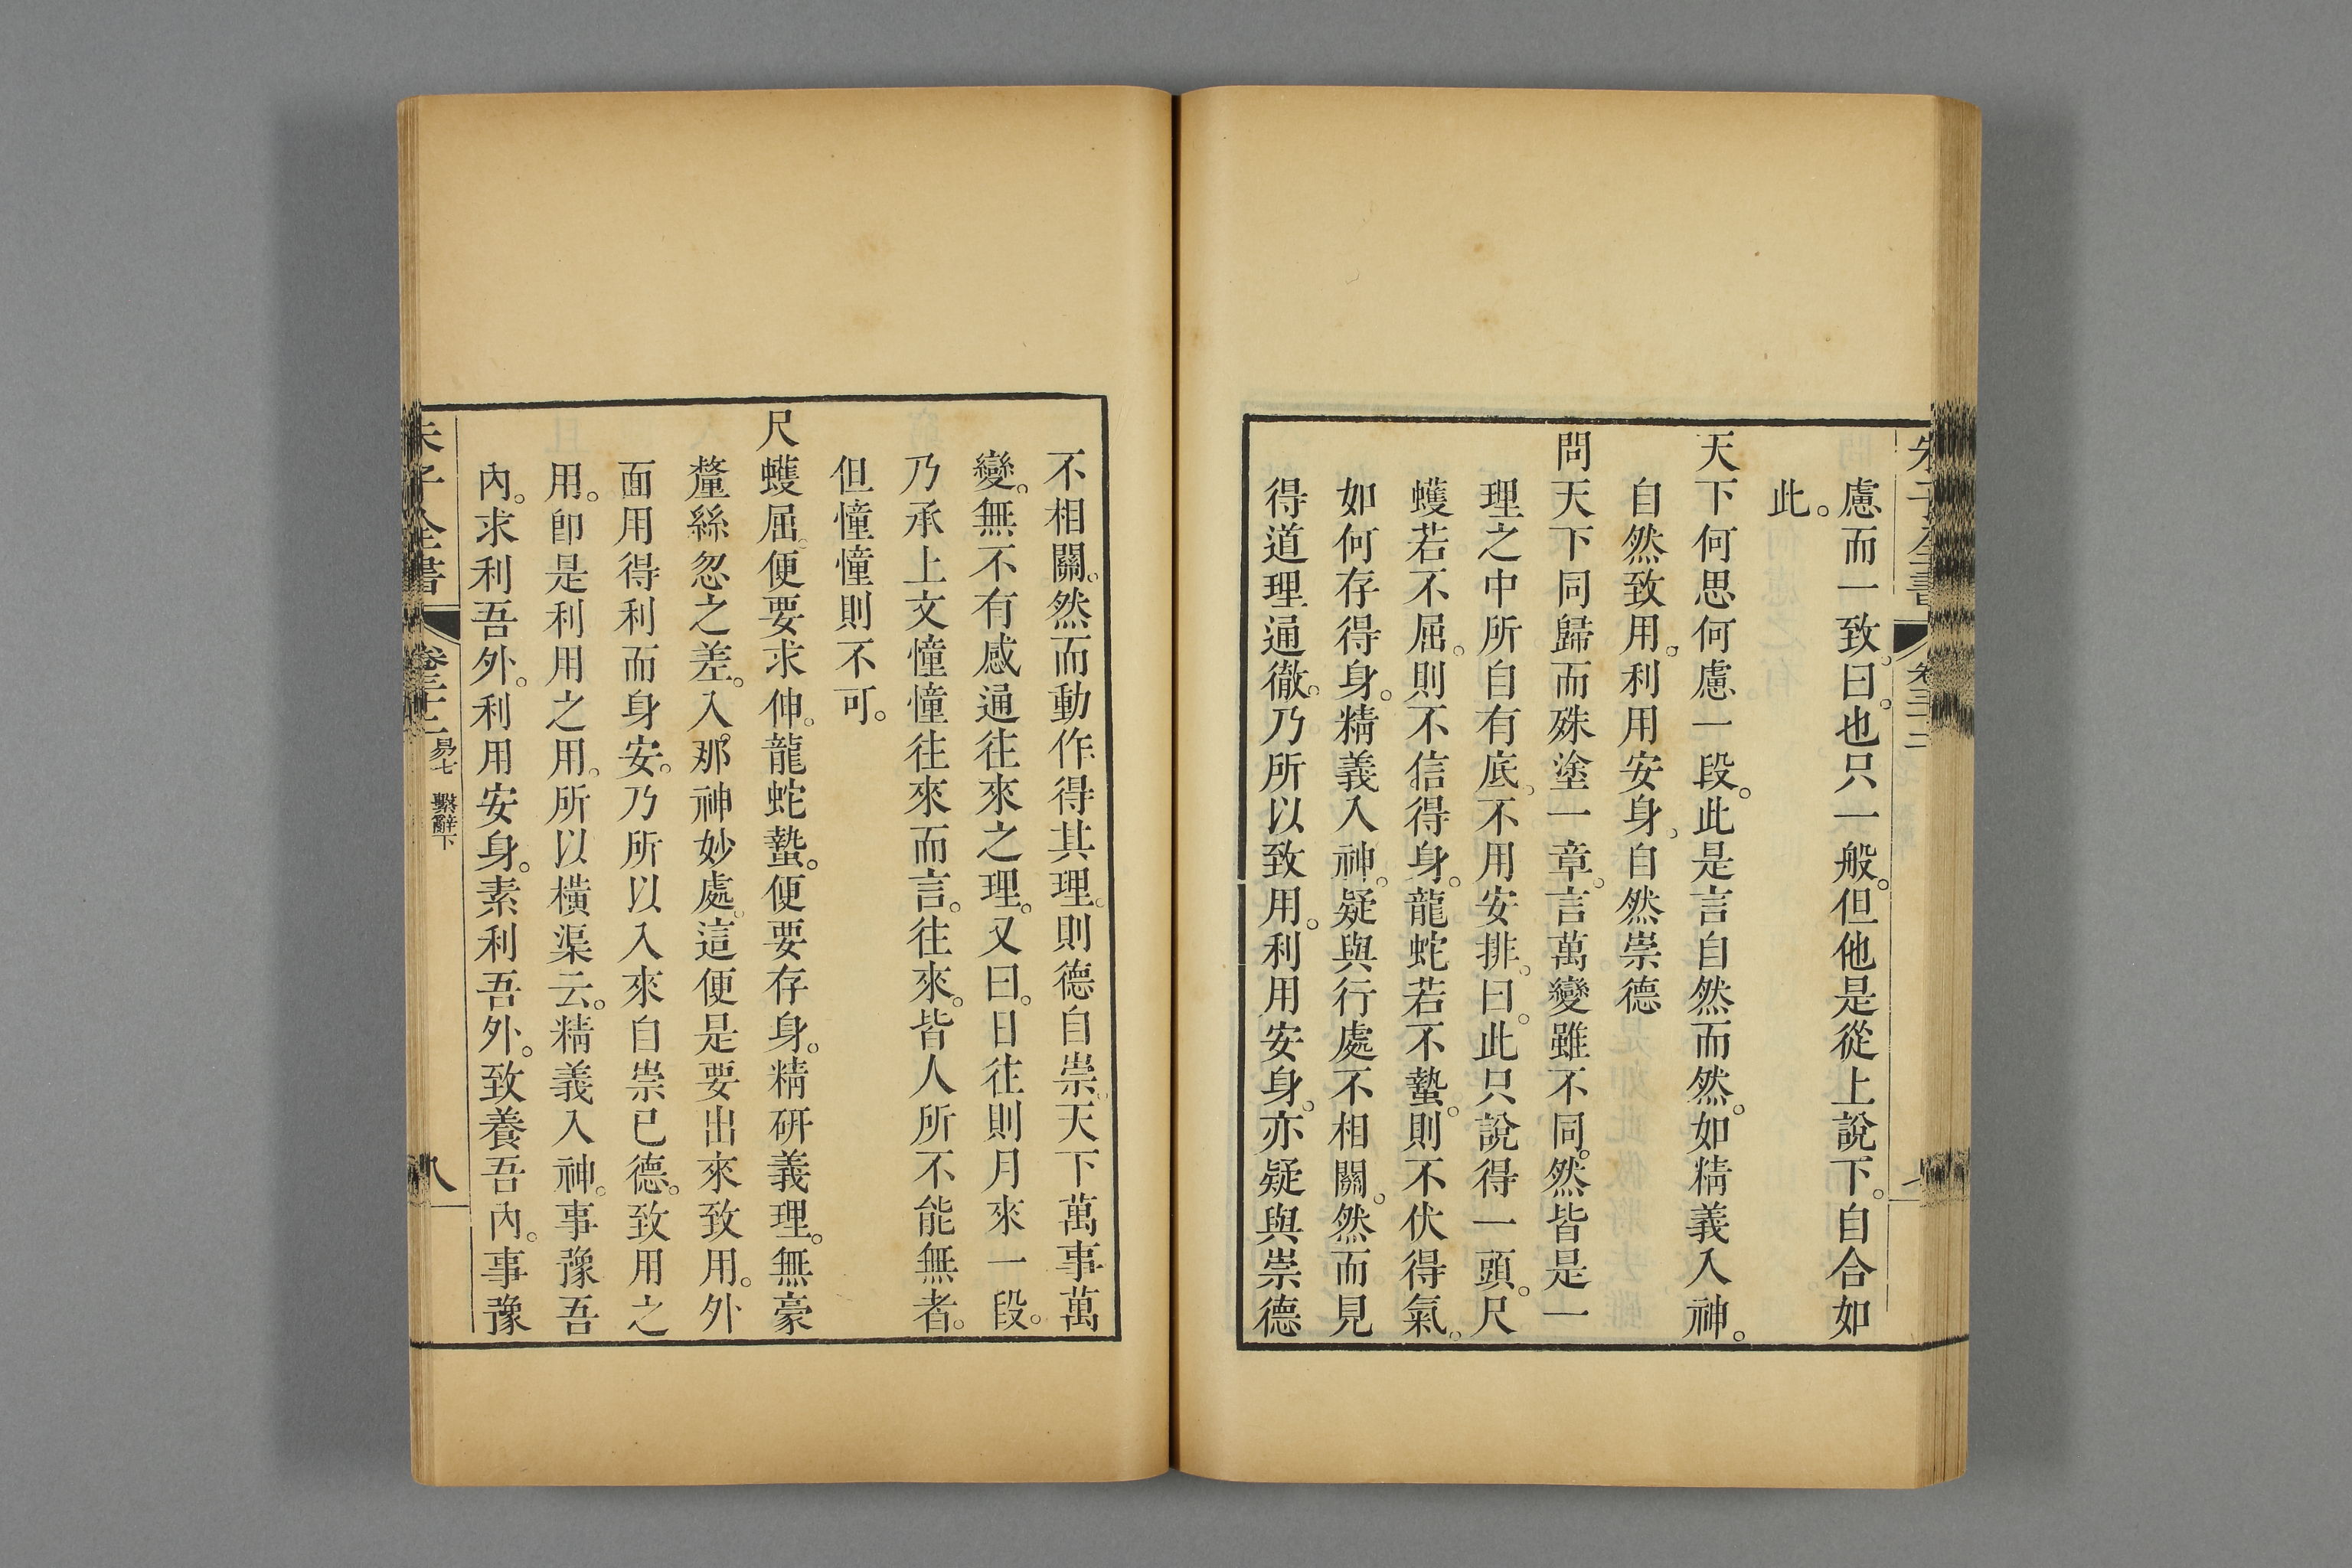 朱子全書 卷三十二
慮而一致。曰。也只一般。但他是從上說下。自合如
此。
天下何思何慮一段。此是言自然而然。如精義入神。
自然致用。利用安身。自然崇德
問天下同歸而殊塗一章。言萬變雖不同。然皆是一
理之中所自有底。不用安排。曰。此只說得一頭。尺
蠖若不屈。則不信得身。龍蛇若不蟄。則不伏得氣。
如何存得身。精義入神。疑與行處不相關。然而見
得道理通徹。乃所以致用。利用安身。亦疑與崇德
不相關。然而動作得其理。則德自崇。天下萬事萬
變。無不有感通往來之理。又曰。日往則月來一段。
乃承上文憧憧往來而言。往來。皆人所不能無者。
但憧憧則不可。
尺蠖屈。便要求伸。龍蛇蟄。便要存身。精研義理。無豪
釐絲忽之差。入那神妙處。這便是要出來致用。外
面用得利而身安。乃所以入來自崇已德。致用之
用。卽是利用之用。所以橫渠云。精義入神。事豫吾
內。求利吾外。利用安身。素利吾外。致養吾內。事豫
朱子全書 卷三十二 易七 繫辭下 八